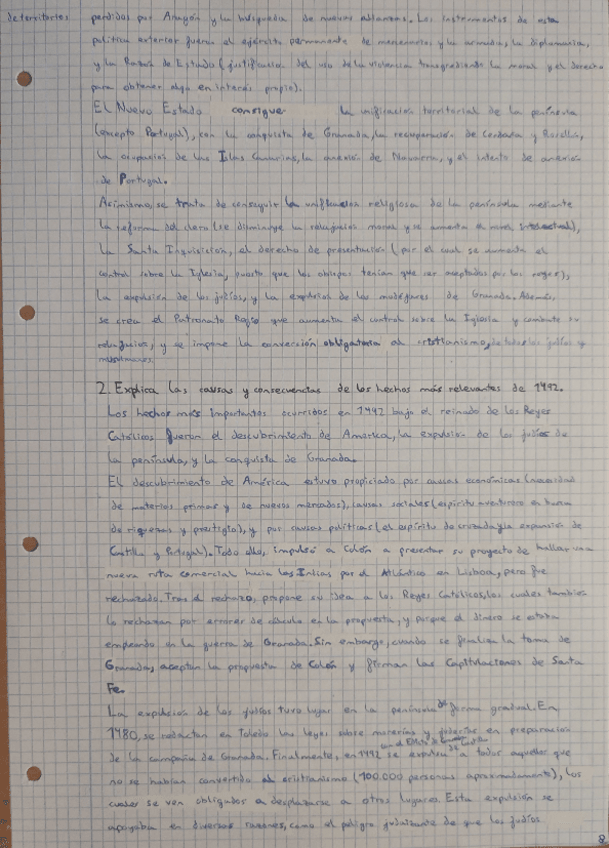 de territorios
perdidos por Aragón y la búsqueda de nuevas alianzas. Los instrumentos de esta
política exterior fueron el ejército permanente de mercenarios, y la armada, la diplomacia,
y la Razón de Estado (justificación del uso de la violencia transgrediendo la moral y el derecho
para obtener algo en interés propio).
El Nuevo Estado consigue la unificación territorial de la península
(excepto Portugal), con la conquista de Granada, la recuperación de Cerdaña y Rosellón,
la ocupación de las Islas Canarias, la anexión de Navarra, y el intento de anexión
de Portugal.
Asimismo, se trata de conseguir la unificación religiosa de la península mediante
la reforma del clero (se disminuye la relajación moral y se aumenta el nivel intelectual),
la Santa Inquisición, el derecho de presentación (por el cual se aumenta el
control sobre la Iglesia, puesto que los obispos tenían que ser aceptados por los reyes),
la expulsión de los judíos, y la expulsión de los mudéjares de Granada. Además,
se crea el Patronato Regio que aumenta el control sobre la Iglesia y combate su
relajación, y se impone la conversión obligatoria al cristianismo, de todos los judíos y
musulmanes.
2. Explica las causas y consecuencias de los hechos más relevantes de 1492.
Los hechos más importantes ocurridos en 1492 bajo el reinado de los Reyes
Católicos fueron el descubrimiento de América, la expulsión de los judíos de
la península, y la conquista de Granada.
El descubrimiento de América estuvo propiciado por causas económicas (necesidad
de materias primas y de nuevos mercados), causas sociales (espíritu aventurero en busca
de riquezas y prestigio), y por causas políticas (el espíritu de cruzada y la expansión de
Castilla y Portugal). Todo ello, impulsó a Colón a presentar su proyecto de hallar una
nueva ruta comercial hacia las Indias por el Atlántico en Lisboa, pero fue
rechazado. Tras el rechazo, propone su idea a los Reyes Católicos, los cuales también
lo rechazan por errores de cálculo en la propuesta, y porque el dinero se estaba
empleando en la guerra de Granada. Sin embargo, cuando se finaliza la toma de
Granada, aceptan la propuesta de Colón y firman las Capitulaciones de Santa
Fe.
La expulsión de los judíos tuvo lugar en la península de forma gradual. En
1480, se redactan en Toledo las leyes sobre morerías y juderías en preparación
de la campaña de Granada. Finalmente, en 1492 se expulsa a todos aquellos que
no se habían convertido al cristianismo (100.000 personas aproximadamente), los
cuales se ven obligados a desplazarse a otros lugares. Esta expulsión se
apoyaba en diversas razones, como el peligro judaizante de que los judíos
8